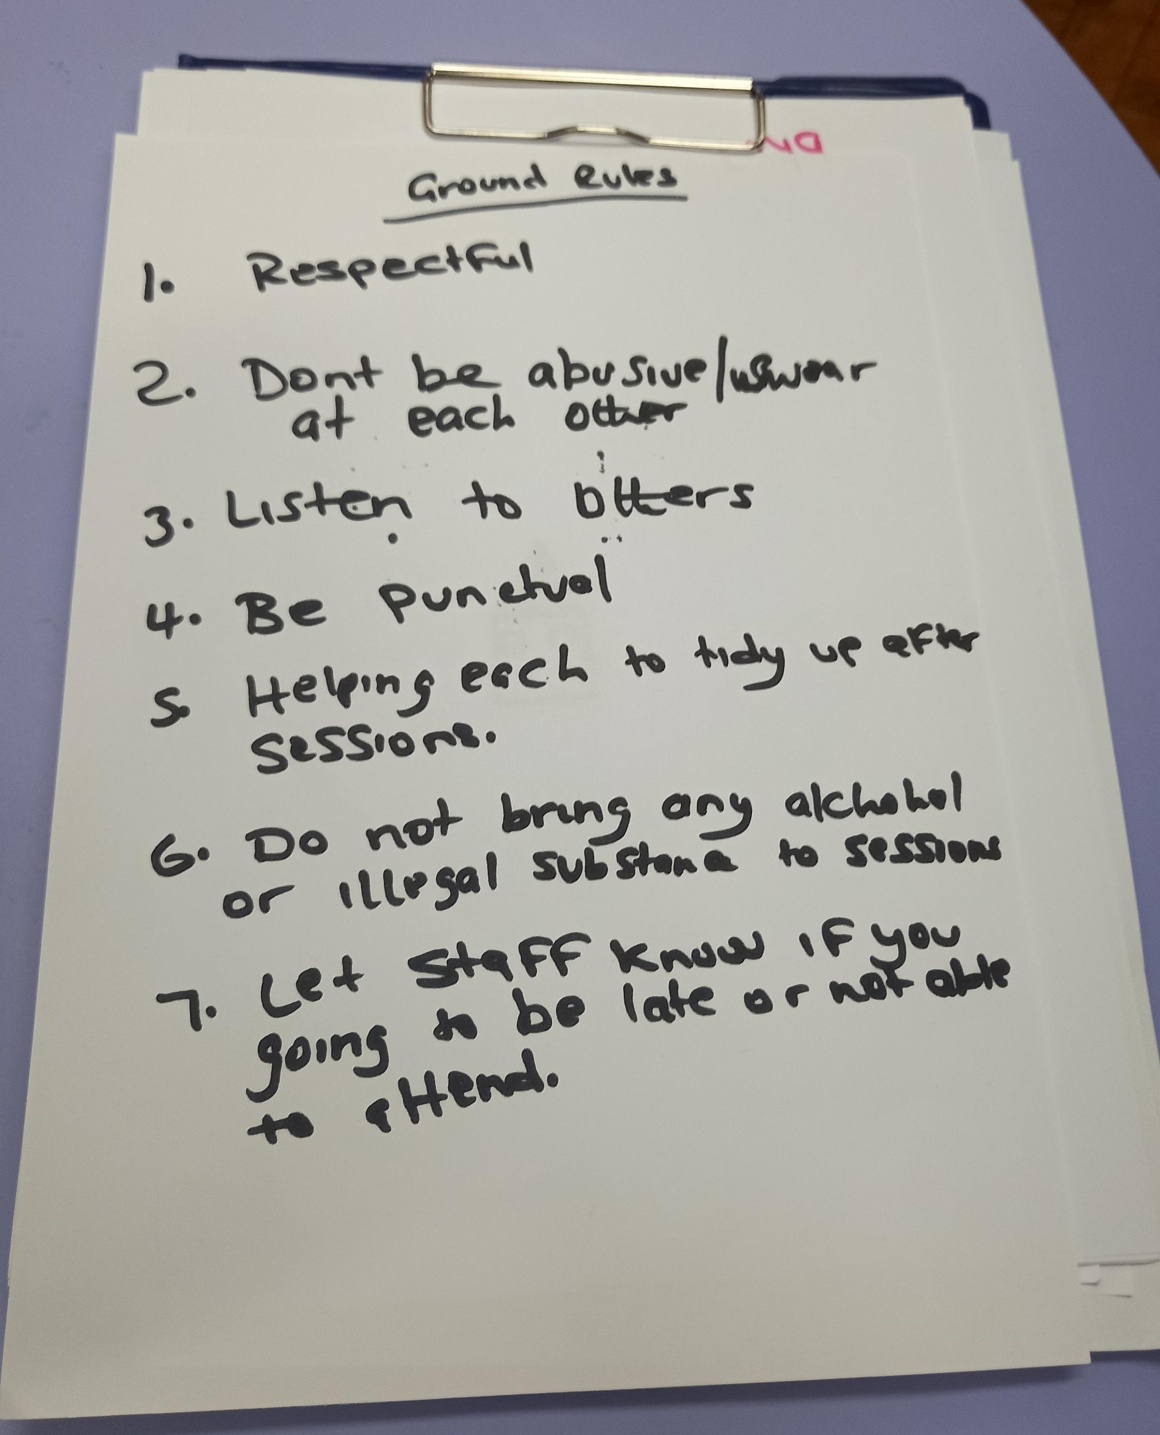 Ground Rules
1. Respectful
2. Dont be abusive/swear
at each other
3. Listen to others
4. Be punctual
5. Helping each to tidy up after
sessions.
6. Do not bring any alchohol
or illegal substance to sessions
7. Let staff know if you
going to be late or not able
to attend.